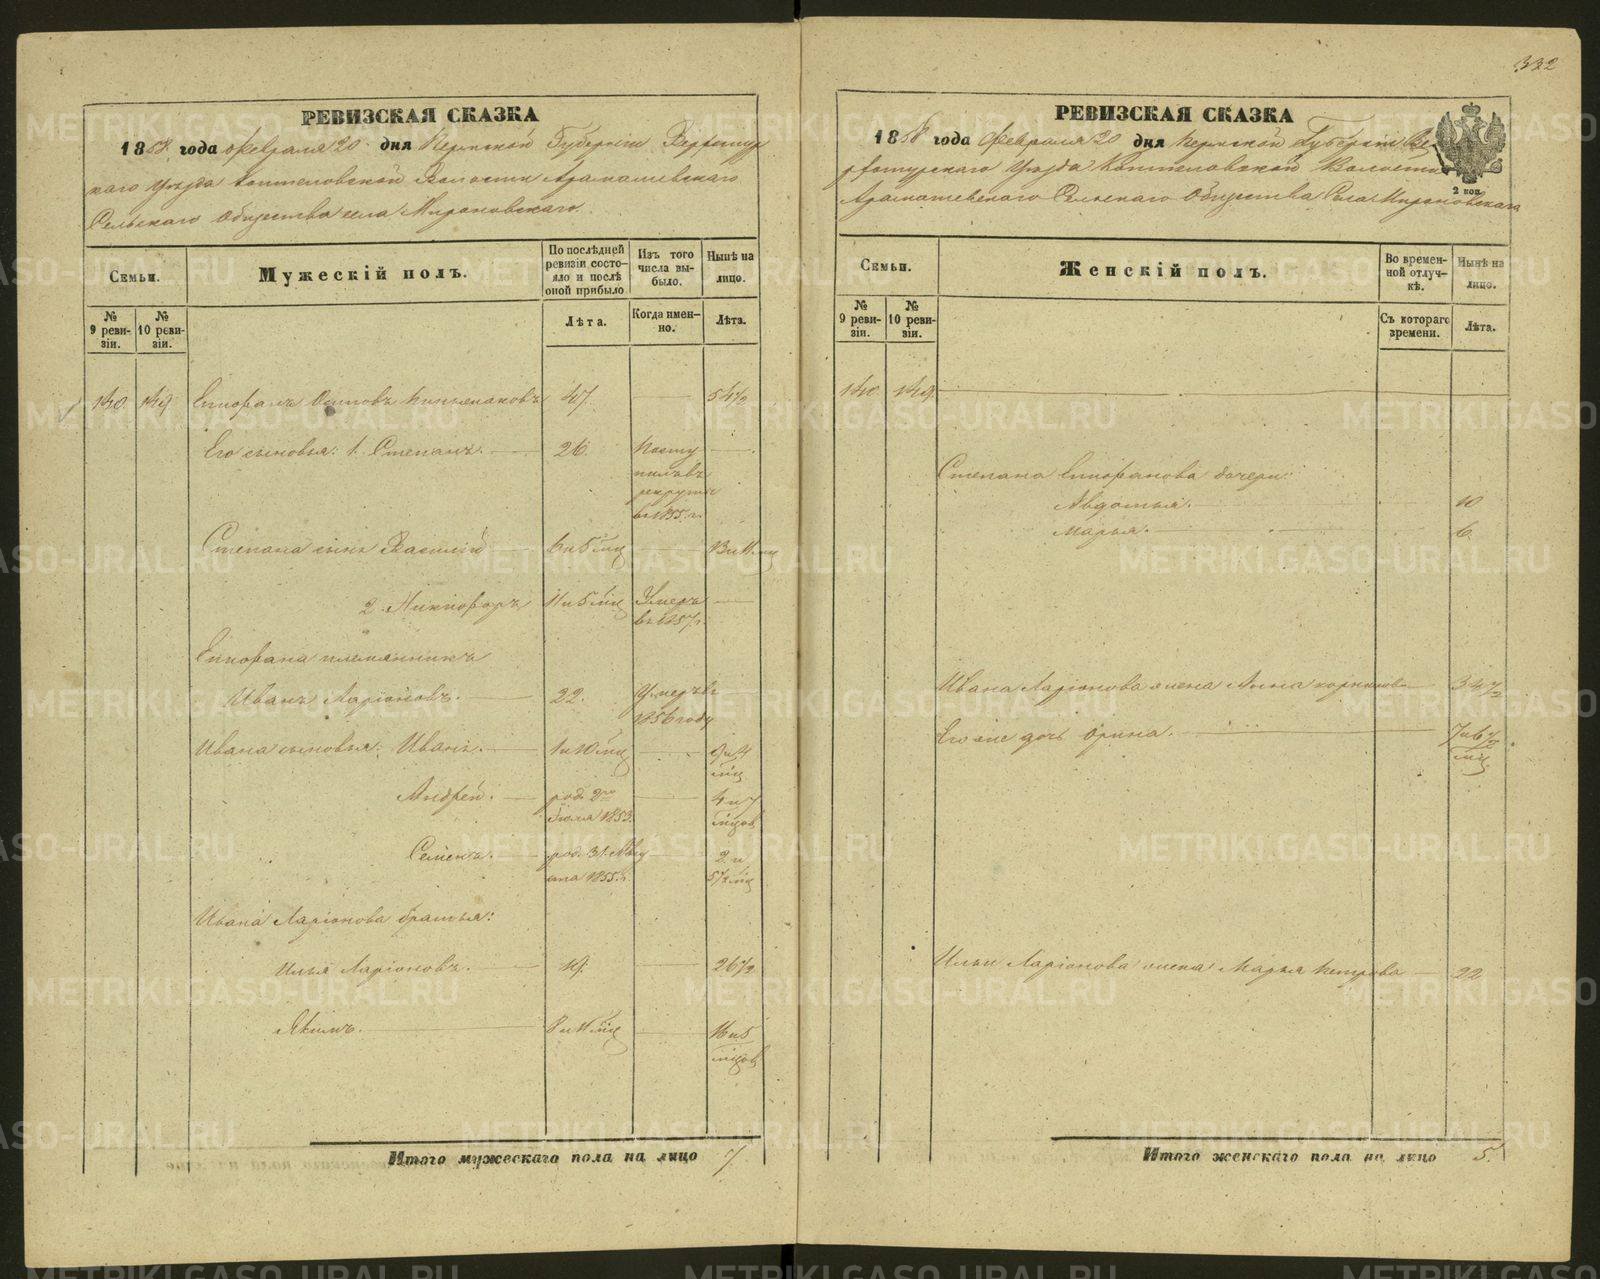 332
РЕВИЗСКАЯ СКАЗКА
1858 года февраля 20 дня Пермской Губерніи Верхотур
скаго уѣзда Коптеловской Волости Арамашевскаго
Сельскаго Общества села Мироновскаго
Семьи.
Мужескій полъ.
По послѣдней ревизіи состояло и послѣ оной прибыло
Изъ того числа выбыло.
Нынѣ на лицо.
№ 9 ревизіи.
№ 10 ревизіи.
Лѣта.
Когда именно.
Лѣта.
140. 149 Епифанъ Осиповъ 47. 54½
Его сыновья: 1. Степанъ. 26. Посту
пилъ въ
рекруты
въ 1855. г.
Степана сынъ Василій 6 и 5 мц
2. Никифоръ 11 и 5 мц Умеръ
въ 1857. г.
Епифана племянникъ
Иванъ Ларіоновъ. 22. Умеръ въ
1856 году
Ивана сыновья: Иванъ. 1 и 10 мц 9 и 4
мц
Андрей. род. 2го 4 и 7
Іюля 1853. мцов
Семенъ. род. 31. Авгу 2. и
ста 1855. г. 5½ мц
Ивана Ларіонова братья:
Илья Ларіоновъ. 19. 26½
Якимъ. 8 и 11 мц 16 и 5
мцов
Итого мужескаго пола на лицо 7.
РЕВИЗСКАЯ СКАЗКА
1858 года Февраля 20 дня Пермской Губерніи Ве
рхотурскаго Уѣзда Коптеловской Волости
Арамашевскаго Сельскаго Общества Села Мироновскаго
2 коп.
Семьи.
Женскій полъ.
Во временной отлучкѣ.
Нынѣ на лицо.
№ 9 ревизіи.
№ 10 ревизіи.
Съ котораго времени.
Лѣта.
140 149.
Степана Епифанова дочери:
Авдотья. 10
Марья. 6.
Ивана Ларіонова жена Анна 34½
Его же дочь Орина. 7 и 6½
мц.
Ильи Ларіонова жена Марья Петрова 22
Итого женскаго пола на лицо 5.
METRIKI.GASO-URAL.RU